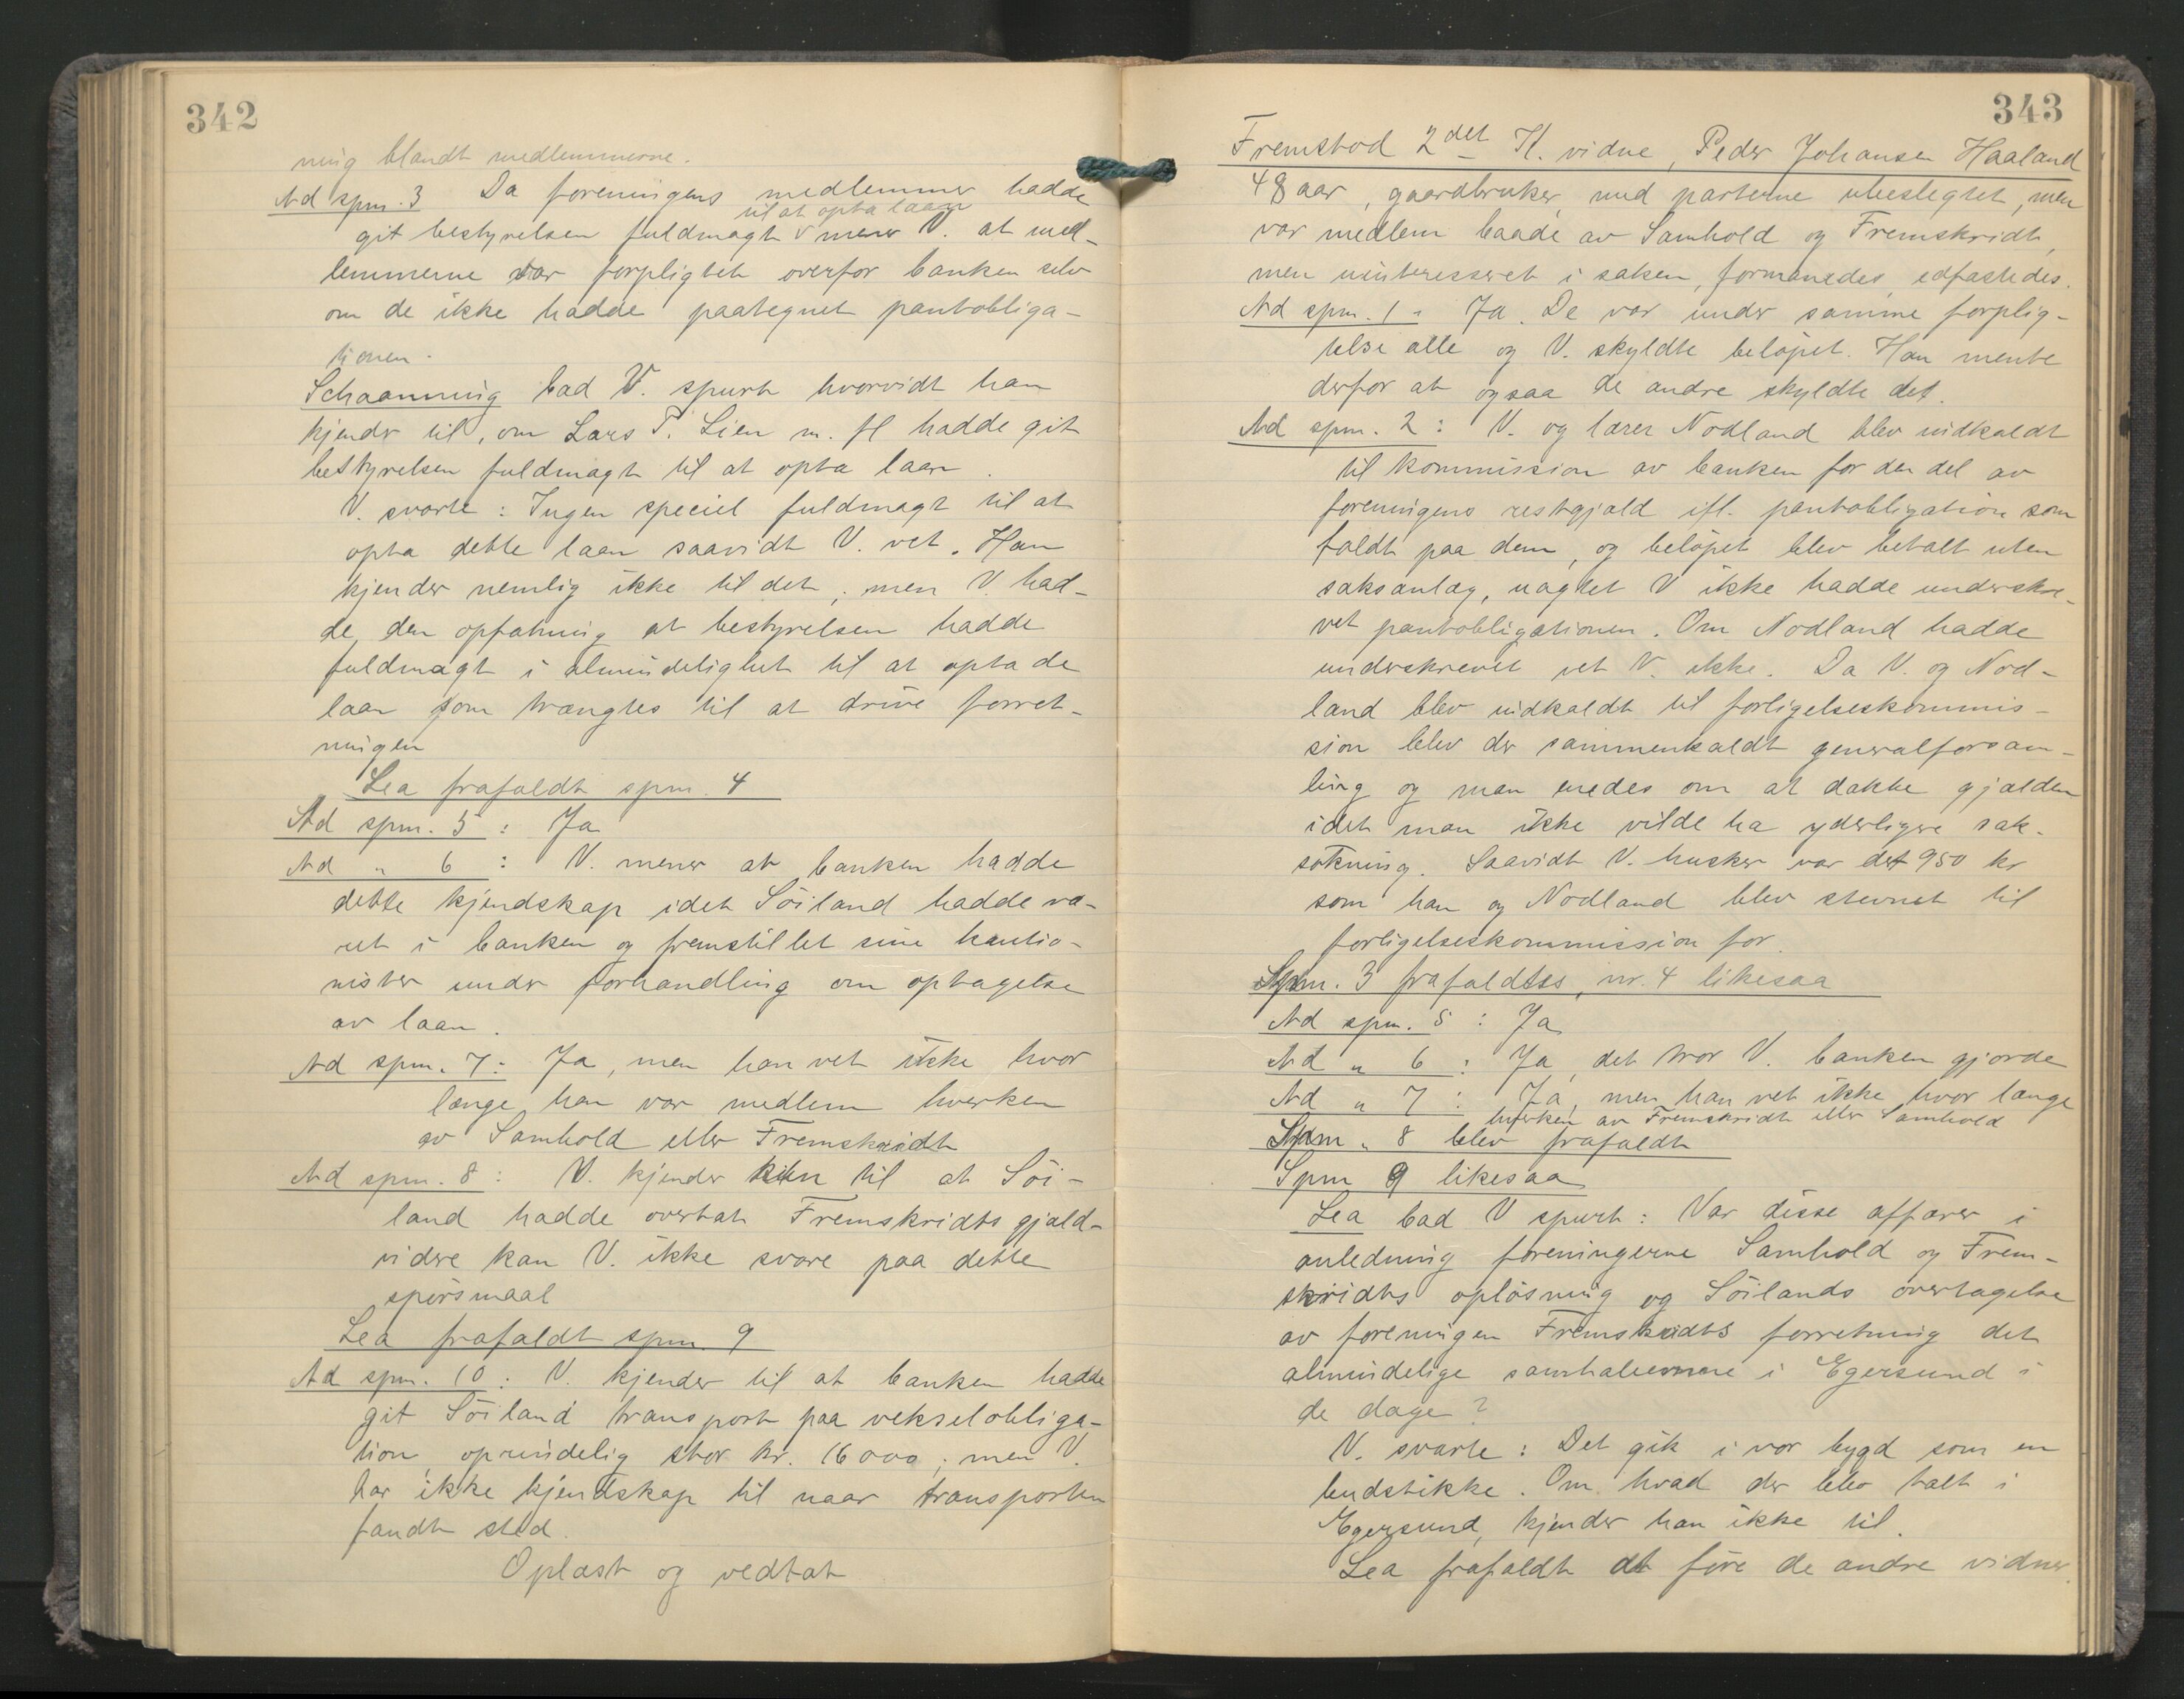 342
ning blandt medlemmerne.
Ad spm. 3 Da foreningens medlemmer hadde
til at opta laan
git bestyrelsen fuldmagt v mener V. at med-
lemmerne var forpligtet overfor banken selv
om de ikke hadde paategnet pantobliga-
tionen.
Schaanning bad V. spurt hvorvidt han
kjender til, om Lars T. Lien m. fl hadde git
bestyrelsen fuldmagt til at opta laan.
V. svarte: Ingen speciel fuldmagt til at
opta dette laan saavidt V. vet. Han
kjender nemlig ikke til det, men V. had-
de den opfatning at bestyrelsen hadde
fuldmagt i almindelighet til at opta de
laan som trængtes til at drive forret-
ningen
Lea frafaldt spm. 4
Ad spm. 5: Ja
Ad " 6: V. mener at banken hadde
dette kjendskap idet Söiland hadde væ-
ret i banken og fremstillet sine kautio-
nister under forhandling om optagelse
av laan.
Ad spm. 7: Ja, men han vet ikke hvor
længe han var medlem hverken
av Samhold eller Fremskridt
Ad spm. 8: V. kjender kun til at Söi-
land hadde overtat Fremskridts gjæld-
videre kan V. ikke svare paa dette
spörsmaal
Lea frafaldt spm. 9
Ad spm. 10: V. kjender til at banken hadde
git Söiland transport paa vekselobliga-
tion, oprindelig stor kr. 16000; men V.
har ikke kjendskap til naar transporten
fandt sted.
Oplæst og vedtat
343
Fremstod 2det H. vidne, Peder Johansen Haaland
48 aar, gaardbruker, med parterne ubeslegtet, men
var medlem baade av Samhold og Fremskridt,
men uinteresseret i saken, formanedes, edfæstedes.
Ad spm. 1: Ja. De var under samme forplig-
telse alle og V. skyldte belöpet. Han mente
derfor at ogsaa de andre skyldte det.
Ad spm. 2: V. og lærer Nodland blev indkaldt
til kommission av banken for den del av
foreningens restgjæld ifl. pantobligation som
faldt paa dem, og belöpet blev betalt uten
saksanlæg, uagtet V ikke hadde underskre-
vet pantobligationen. Om Nodland hadde
underskrevet vet V. ikke. Da V. og Nod-
land blev indkaldt til forligelseskommis-
sion blev der sammenkaldt generalforsam-
ling og man enedes om at dække gjælden
idet man ikke vilde ha yderligere sak-
sökning. Saavidt V. husker var det 950 kr
som han og Nodland blev stevnet til
forligelseskommission for.
Spm. 3 frafaldtes, nr. 4 likesaa
Ad spm. 5: Ja
Ad " 6: Ja, det tror V. banken gjorde
Ad " 7: Ja, men han vet ikke hvor længe
hverken av Fremskridt eller Samhold
Spm. 8 blev frafaldt
Spm 9 likesaa
Lea bad V spurt: Var disse affærer i
anledning foreningerne Samhold og Frem-
skridts oplösning og Söilands overtagelse
av foreningen Fremskridts forretning det
almindelige samtaleemne i Egersund i
de dage?
V. svarte: Det gik i vor bygd som en
budstikke. Om hvad der blev talt i
Egersund, kjender han ikke til.
Lea frafaldt at före de andre vidner.